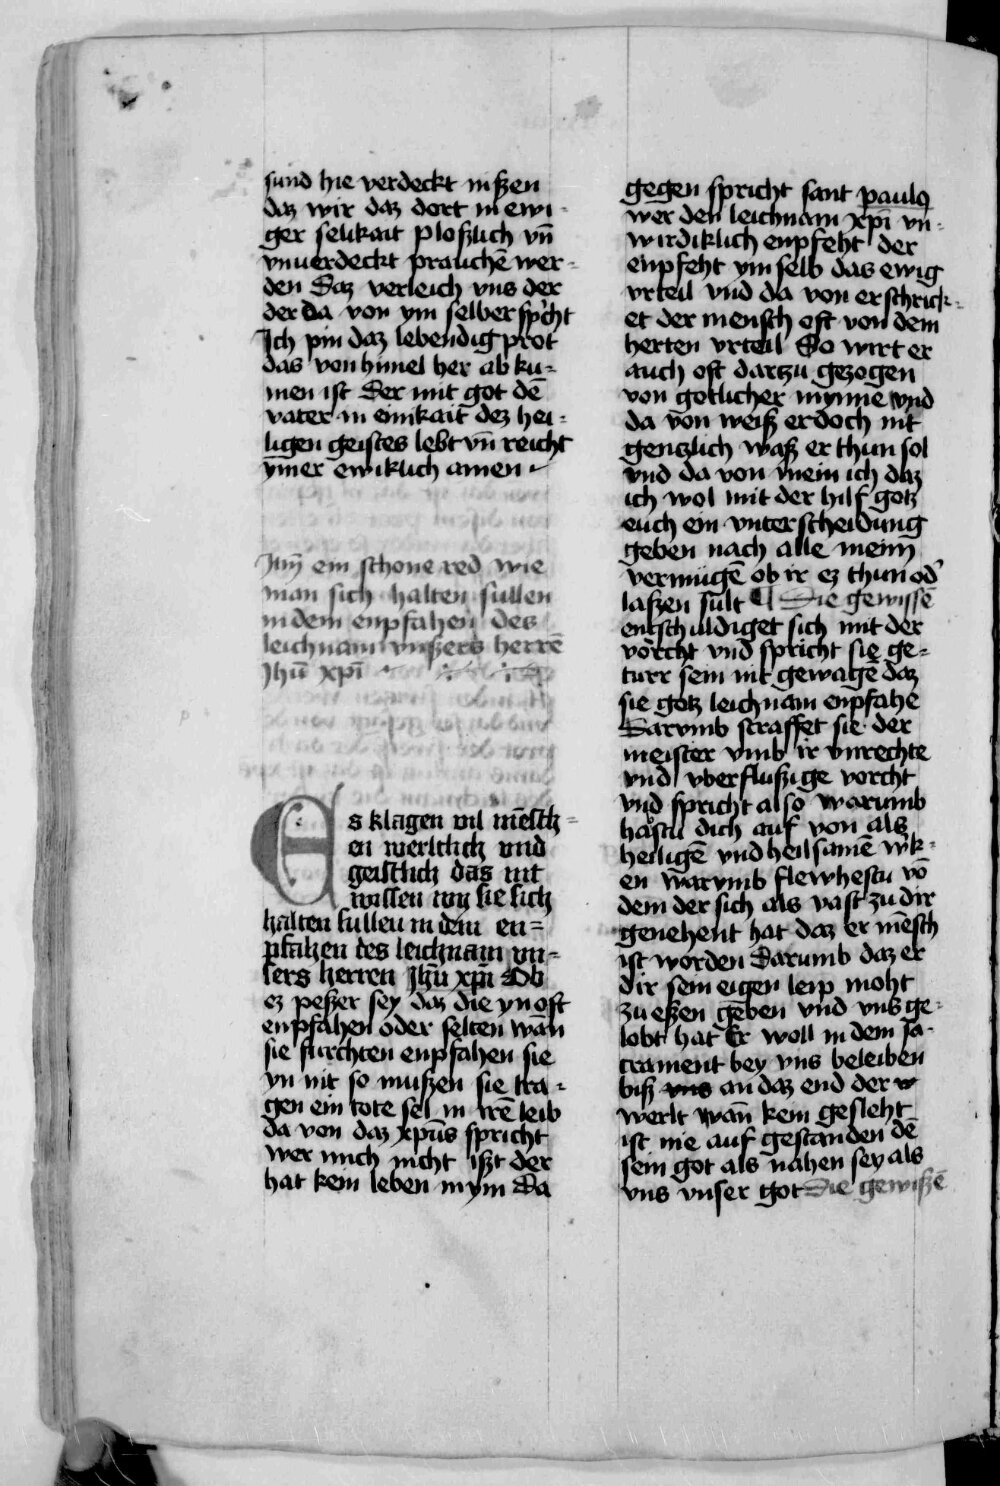 sund hie verdeckt nißen
daz wir daz dort in ewi-
ger selikait ploßlich vn̄
vnuerdeckt prauchē wer-
den Daz verleich vns der
der da von ym selber spͥcht
Ich pin daz lebendig prot
das von himel her ab ku-
men ist Der mit got dē
vater in einikait dez hei-
ligen geistes lebt vn̄ reicht
ym̄er ewiklich amen
ein schone red wie
man sich halten sullen
in dem enpfahen des
leichnam vnßers herrē
Jhū xp̄i
Es klagen vil mēsch-
en werltlich vnd
geistlich das nit
wissen wy sie sich
halten sullen in dem en-
pfahen des leichnam vn-
sers herren Jhū xp̄i Ob
ez peßer sey daz die yn oft
enpfahen oder selten wan̄
sie furchten enpfahen sie
yn nit so mußen sie tra-
gen ein tote sel in irē leib
da von daz xp̄us spricht
wer mich nicht ißt der
hat kein leben in ym Da
gegen spricht sant paulꝯ
wer den leichnam xp̄i vn-
wirdiklich enpfeht der
enpfeht ym selb das ewig
vrteil vnd da von erschrick-
et der mensch oft von dem
herten vrteil So wirt er
auch oft dartzu gezogen
von gotlicher mynne vnd
da von weiß er doch nit
gentzlich waß er thun sol
vnd da von mein ich daz
ich wol mit der hilf gotz
euch ein vnterscheidung
geben nach alle meim
vermugē ob ir ez thun od'
laßen sult ¶ Die gewissē
entschuldiget sich mit der
vorcht vnd spricht sie ge-
turr sein nit gewagē daz
sie gotz leichnam enpfahe
Darvmb straffet sie der
meister vmb ir vnrechte
vnd vberflußige vorcht
vnd spricht also warumb
hastu dich auf von als
heiligē vnd heilsamē w'k-
en warvmb flewhestu vō
dem der sich als vast zu dir
genehent hat daz er mēsch
ist worden Darumb daz er
dir sein eigen leip moht
zu eßen geben vnd vns ge-
lobt hat Er woll in dem sa-
crament bey vns beleiben
biß vns an daz end der w
werlt wan̄ kein gesleht
ist nie auf gestanden dē
sein got als nahen sey als
vns vnser got Die gewißē